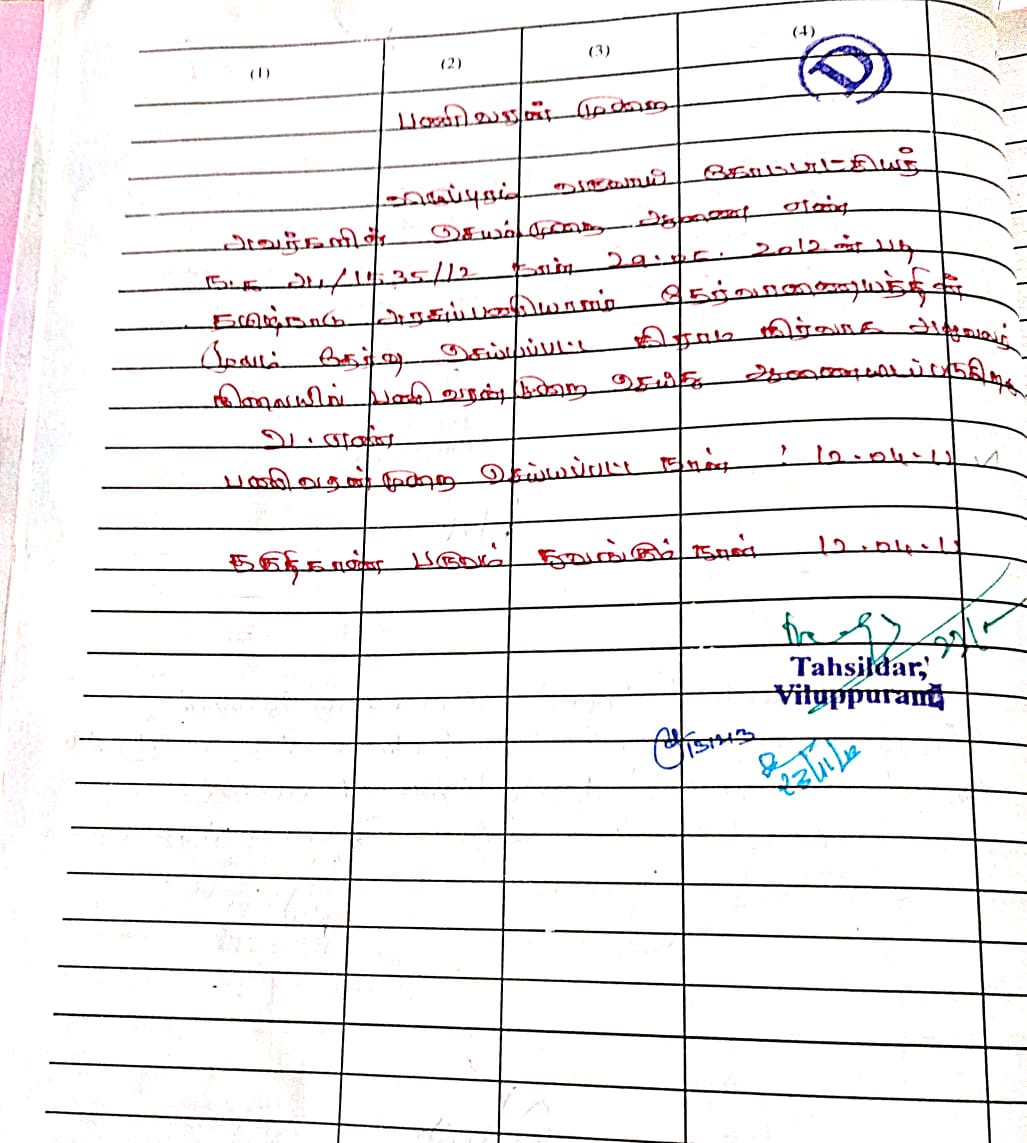 (1) (2) (3) (4)
D
பணி வரன் முறை
விழுப்புரம் வருவாய் கோட்டாட்சியர்
அவர்களின் செயல்முறை ஆணை எண்
ந.க அ1/1535/12 நாள் 29. . 2012 ன் படி
தமிழ்நாடு அரசுப்பணியாளர் தேர்வாணையத்தின்
மூலம் தேர்வு செய்யப்பட்ட கிராம நிர்வாக அலுவலர்
நிலையில் பணி வரன் முறை செய்து ஆணையிடப்படுகிறது
வ. எண்
பணி வரன் முறை செய்யப்பட்ட நாள் : 12.04.11
தகுதிகாண் பருவம் துவங்கும் நாள் 12.04.11
Tahsildar,
Viluppuram
23/11/12